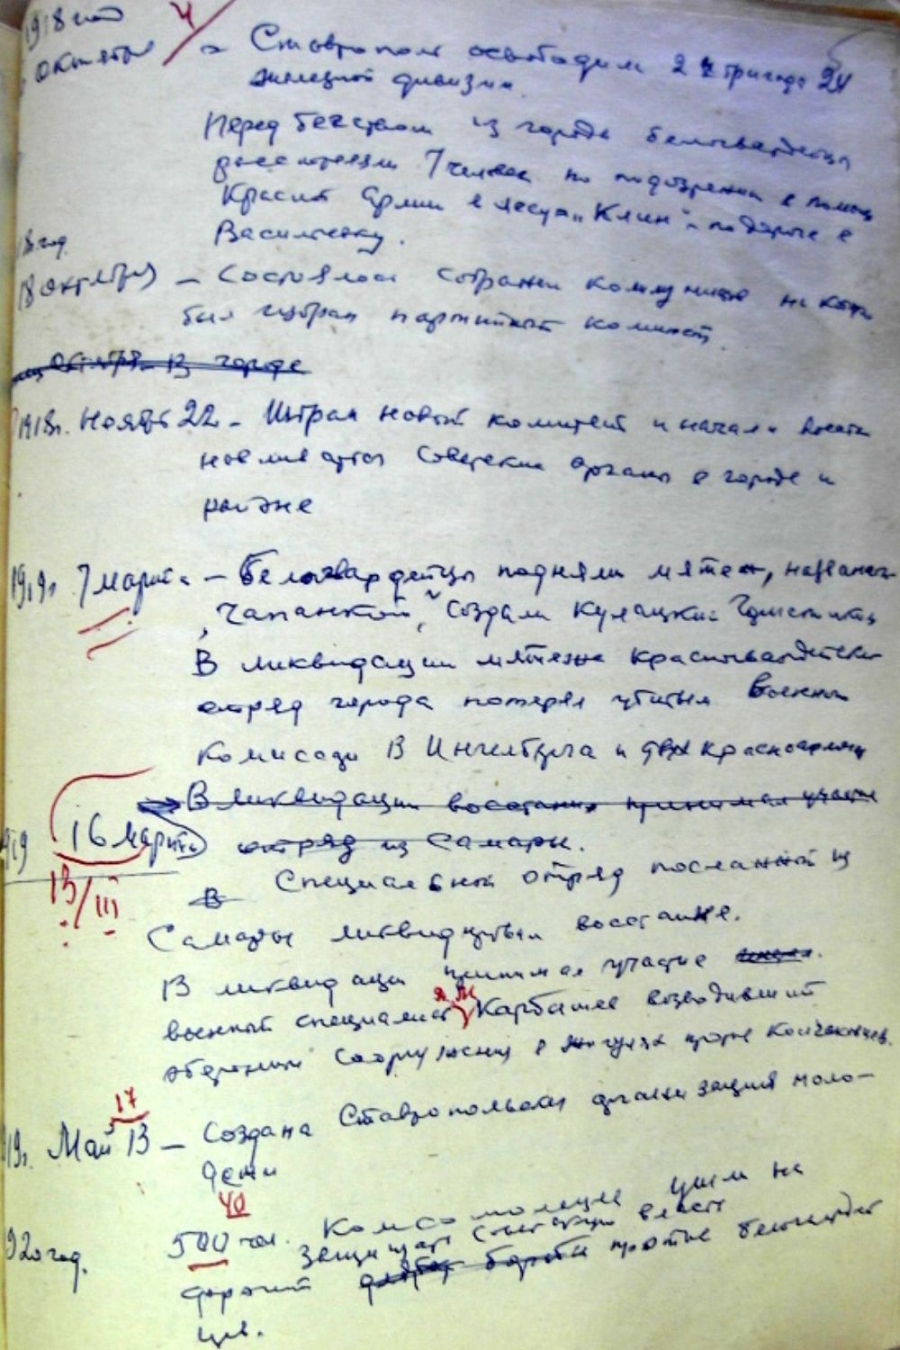 1918 год
4
октября - Ставрополь освободили 2 я бригада 24
дивизии.
Перед бегством из города белогвардейцы
расстреляли 7 человек по подозрению в помощи
Красной армии в лесу „Клин" по дороге в
Васильевку.
18 год
18 октября) - Состоялось собрание коммунистов на котор
был избран партийный комитет.
октября В городе
1918г. Ноябрь 22 - Избран новый комитет и начали
Советские органы в городе и
районе
1919г 7 марта - Белогвардейцы подняли мятеж, назван
"чапанкой", создали Кулацкий
В ликвидации мятежа красногвардейский
отряд города потерял убитым военный
комиссар В Ингельберга и двух красноармейц
В ликвидации восстания принимал участие
1919 16 марта) отряд из Самары.
13/III
В Специальный отряд посланный из
Самары ликвидировал восстание.
В ликвидации принимал участие
военный специалист Карбышев возводивший
сооружения в против Колчаковцев.
17
1919г. Май 13 - Создана Ставропольская организация моло-
дежи
40
1920 год. 500 чел. Комсомольцев ушли на
защищать Советскую власть
борьбы против белогвардей
цев.